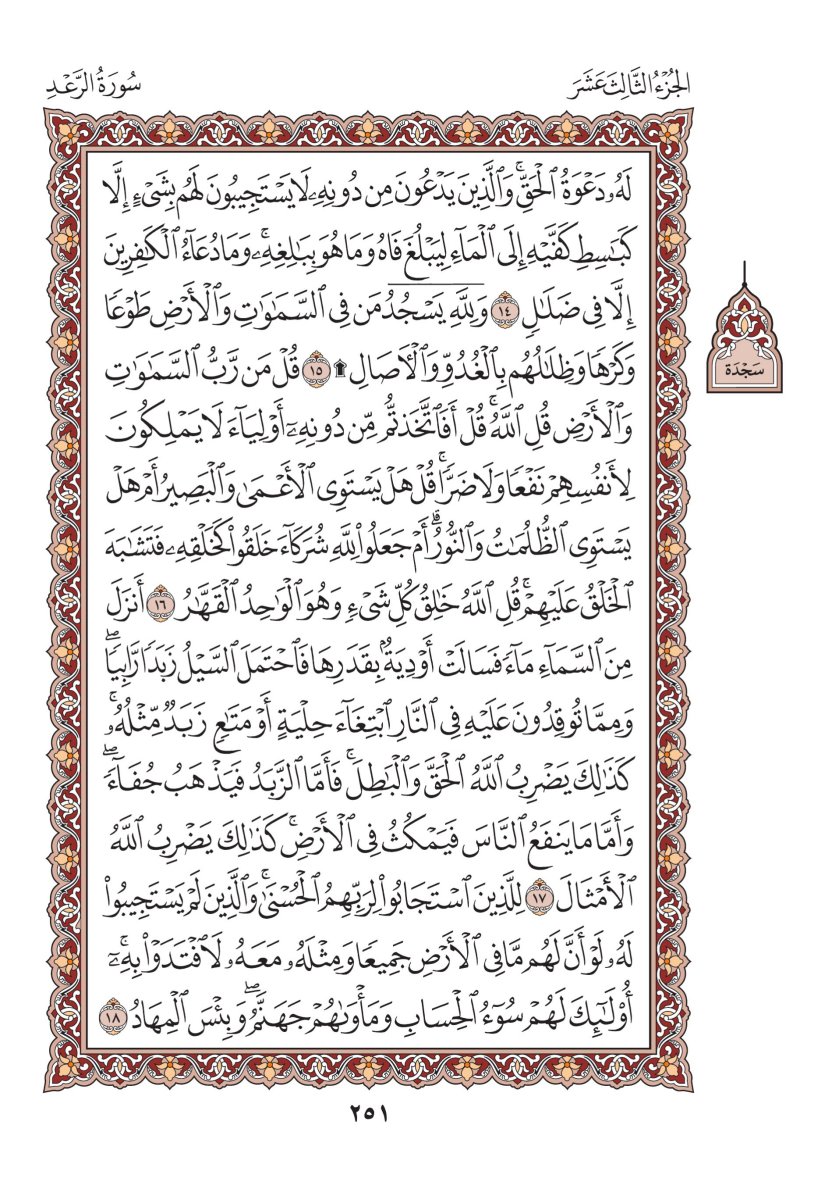 الجُزْءُ الثَّالِثَ عَشَرَ
سُورَةُ الرَّعْدِ
لَهُۥ دَعْوَةُ ٱلْحَقِّۚ وَٱلَّذِينَ يَدْعُونَ مِن دُونِهِۦ لَا يَسْتَجِيبُونَ لَهُم بِشَىْءٍ إِلَّا
كَبَٰسِطِ كَفَّيْهِ إِلَى ٱلْمَآءِ لِيَبْلُغَ فَاهُ وَمَا هُوَ بِبَٰلِغِهِۦۚ وَمَا دُعَآءُ ٱلْكَٰفِرِينَ
إِلَّا فِى ضَلَٰلٍ ١٤ وَلِلَّهِ يَسْجُدُ مَن فِى ٱلسَّمَٰوَٰتِ وَٱلْأَرْضِ طَوْعًا
وَكَرْهًا وَظِلَٰلُهُم بِٱلْغُدُوِّ وَٱلْءَاصَالِ ۩ ١٥ قُلْ مَن رَّبُّ ٱلسَّمَٰوَٰتِ
وَٱلْأَرْضِ قُلِ ٱللَّهُۚ قُلْ أَفَٱتَّخَذْتُم مِّن دُونِهِۦٓ أَوْلِيَآءَ لَا يَمْلِكُونَ
لِأَنفُسِهِمْ نَفْعًا وَلَا ضَرًّاۚ قُلْ هَلْ يَسْتَوِى ٱلْأَعْمَىٰ وَٱلْبَصِيرُ أَمْ هَلْ
يَسْتَوِى ٱلظُّلُمَٰتُ وَٱلنُّورُۗ أَمْ جَعَلُوا۟ لِلَّهِ شُرَكَآءَ خَلَقُوا۟ كَخَلْقِهِۦ فَتَشَٰبَهَ
ٱلْخَلْقُ عَلَيْهِمْۚ قُلِ ٱللَّهُ خَٰلِقُ كُلِّ شَىْءٍ وَهُوَ ٱلْوَٰحِدُ ٱلْقَهَّٰرُ ١٦ أَنزَلَ
مِنَ ٱلسَّمَآءِ مَآءً فَسَالَتْ أَوْدِيَةٌۢ بِقَدَرِهَا فَٱحْتَمَلَ ٱلسَّيْلُ زَبَدًا رَّابِيًاۖ
وَمِمَّا تُوقِدُونَ عَلَيْهِ فِى ٱلنَّارِ ٱبْتِغَآءَ حِلْيَةٍ أَوْ مَتَٰعٍ زَبَدٌ مِّثْلُهُۥۚ
كَذَٰلِكَ يَضْرِبُ ٱللَّهُ ٱلْحَقَّ وَٱلْبَٰطِلَۚ فَأَمَّا ٱلزَّبَدُ فَيَذْهَبُ جُفَآءًۖ
وَأَمَّا مَا يَنفَعُ ٱلنَّاسَ فَيَمْكُثُ فِى ٱلْأَرْضِۚ كَذَٰلِكَ يَضْرِبُ ٱللَّهُ
ٱلْأَمْثَالَ ١٧ لِلَّذِينَ ٱسْتَجَابُوا۟ لِرَبِّهِمُ ٱلْحُسْنَىٰۚ وَٱلَّذِينَ لَمْ يَسْتَجِيبُوا۟
لَهُۥ لَوْ أَنَّ لَهُم مَّا فِى ٱلْأَرْضِ جَمِيعًا وَمِثْلَهُۥ مَعَهُۥ لَٱفْتَدَوْا۟ بِهِۦٓۚ
أُو۟لَٰٓئِكَ لَهُمْ سُوٓءُ ٱلْحِسَابِ وَمَأْوَىٰهُمْ جَهَنَّمُۖ وَبِئْسَ ٱلْمِهَادُ ١٨
سَجْدَة
٢٥١